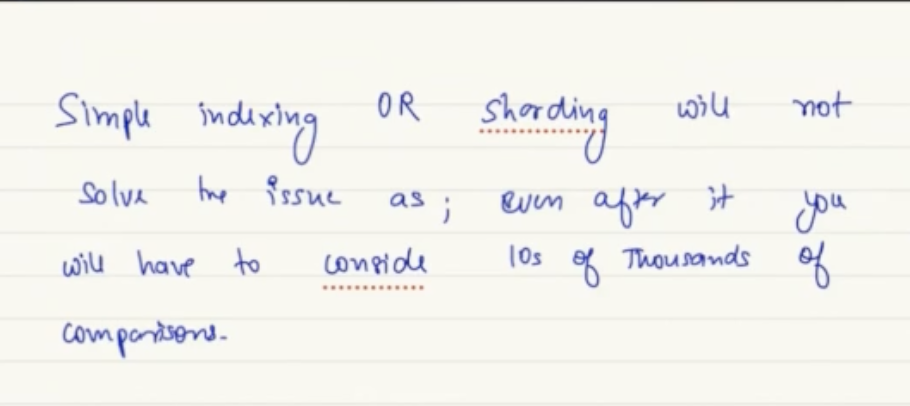 Simple indexing OR Sharding will not
solve the issue as; even after it you
will have to conside 10s of Thousands of
comparisons.